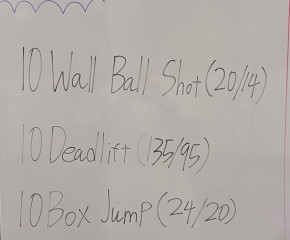 10 Wall Ball Shot (20/14)
10 Deadlift (135/95)
10 Box Jump (24/20)